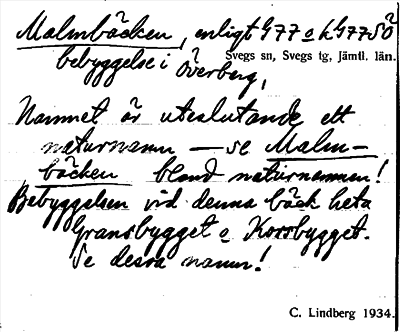 Malmbäcken, enligt G77 o h G77 SÖ
Svegs sn, Svegs tg, Jämtl. län.
bebyggelse i Överberg,
Namnet är uteslutande ett
naturnamn — se Malm-
bäcken bland naturnamnen!
Bebyggelsen vid denna bäck heta
Gransbygget o Korsbygget.
Se dessa namn!
C. Lindberg 1934.